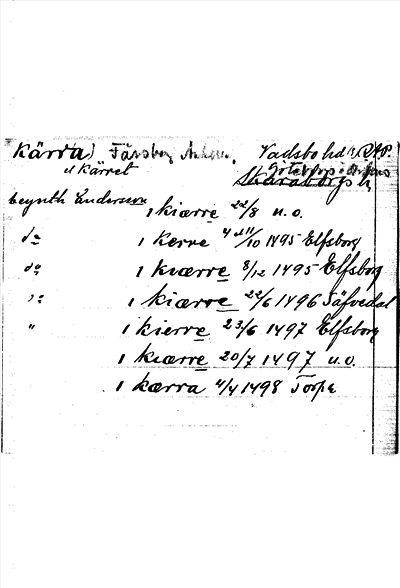 Kärra) Färsberg Vadsbo hd RAP.
el Kärret Skaraborgs
Beynth Andersson i kiærre 22/8 u.o.
do i Kerre 4 o 11/10 1495 Elfsborg
do i kværre 8/12 1495 Elfsborg
i kiærre 22/6 1496 Säfvedal
" i kierre 23/6 1497 Elfsborg
i kiærre 20/7 1497 u.o.
i kærra 4/4 1498 Torpa